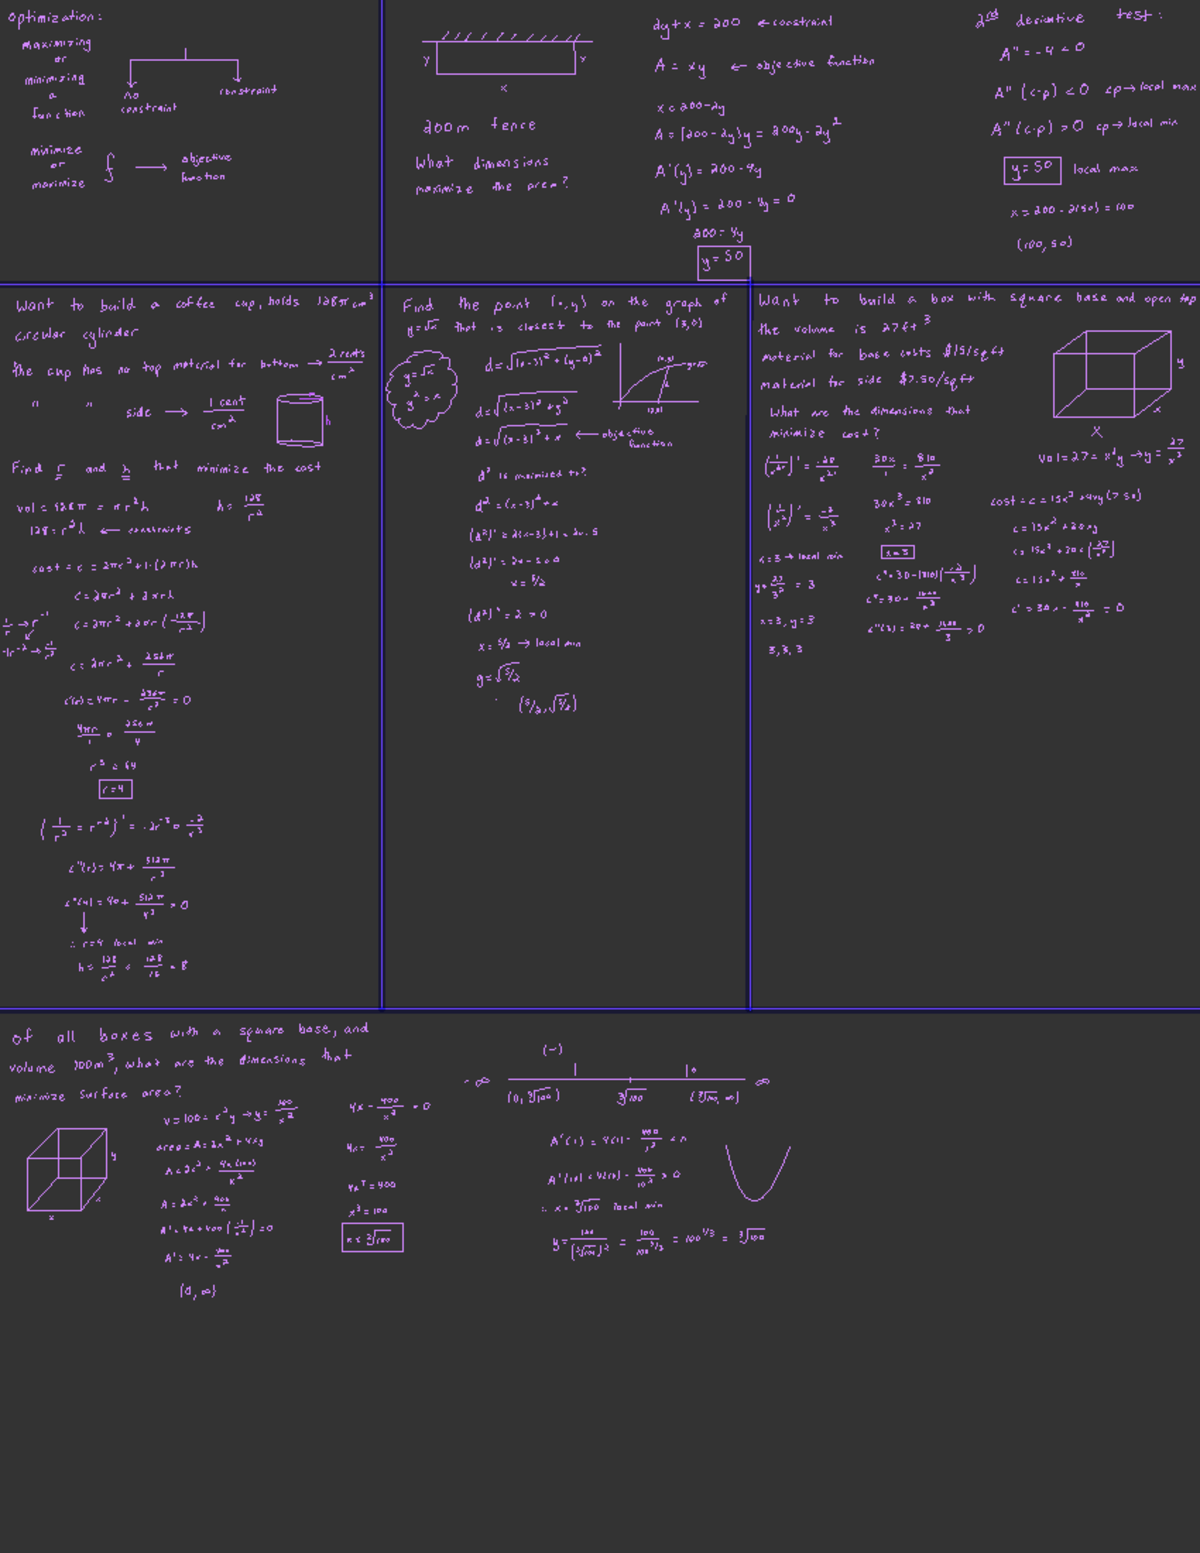 optimization:
maximizing
or
minimizing
a
function
no
constraint
constraint
minimize
or
maximize
f
objective
function
y
y
x
200m fence
What dimensions
maximize the area?
2y+x = 200 ← constraint
A = xy ← objective function
x = 200-2y
A = (200-2y)y = 200y - 2y²
A'(y) = 200 - 4y
A'(y) = 200 - 4y = 0
200 = 4y
y = 50
2nd derivative test:
A'' = -4 < 0
A'' (c.p) < 0 cp → local max
A'' (c.p) > 0 cp → local min
y = 50 local max
x = 200 - 2(50) = 100
(100, 50)
Want to build a coffee cup, holds 128π cm³
circular cylinder
the cup has no top material for bottom → 2 cents/cm²
" " side → 1 cent/cm²
h
Find r and h that minimize the cost
vol = 128π = πr²h h = 128/r²
128 = r²h ← constraints
cost = c = 2πr² + 1·(2πr)h
c = 2πr² + 2πrh
1/r → r⁻¹
c = 2πr² + 2πr (128/r²)
-1r⁻² → -1/r²
c = 2πr² + 256π/r
c'(r) = 4πr - 256π/r² = 0
r³ = 64
r = 4
(1/r² = r⁻²)' = -2r⁻³ = -2/r³
c''(r) = 4π + 512π/r³
∴ r=4 local min
h = 128/r² = 128/16 = 8
Find the point (x,y) on the graph of
y = √x that is closest to the point (3,0)
y = √x
y² = x
d = √(x-3)² + (y-0)²
d = √(x-3)² + y²
d = √(x-3)² + x ← objective function
d² = (x-3)² + x
(d²)' = 2(x-3)+1 = 2x-5
(d²)' = 2x-5=0
x = 5/2
(d²)'' = 2 > 0
x = 5/2 → local min
y = √5/2
(5/2, √5/2)
Want to build a box with square base and open top
the volume is 27ft³
material for base costs $15/sqft
material for side $7.50/sqft
What are the dimensions that
minimize cost?
y
x
x
vol = 27 = x²y → y = 27/x²
30x/1 = 810/x²
(1/x²)' = -2/x³
30x³ = 810
x³ = 27
x = 3
cost = c = 15x² + 4xy(7.50)
c = 15x² + 30xy
c = 15x² + 30x (27/x²)
c = 15x² + 810/x
c' = 30x - 810/x² = 0
x = 3 → local min
y = 27/3² = 3
x=3, y=3
3, 3, 3
c'' = 30 - (810)(-2/x³)
c'' = 30 + 1620/x³
Of all boxes with a square base, and
volume 100m³, what are the dimensions that
minimize surface area?
y
x
x
v = 100 = x²y → y = 100/x²
area = A = 2x² + 4xy
A = 2x² + 4x(100)/x²
A = 2x² + 400/x
A' = 4x + 400 (-1/x²) = 0
A' = 4x - 400/x²
(0, ∞)
4x - 400/x² = 0
4x = 400/x²
4x³ = 400
x³ = 100
x = ³√100
(-)
-∞
∞
(0, ³√100)
³√100
(³√100, ∞)
A'(1) = 4(1) - 400/1² < 0
A'(10) = 4(10) - 400/10² > 0
∴ x = ³√100 local min
y = 100/(³√100)² = 100/100^2/3 = 100^1/3 = ³√100